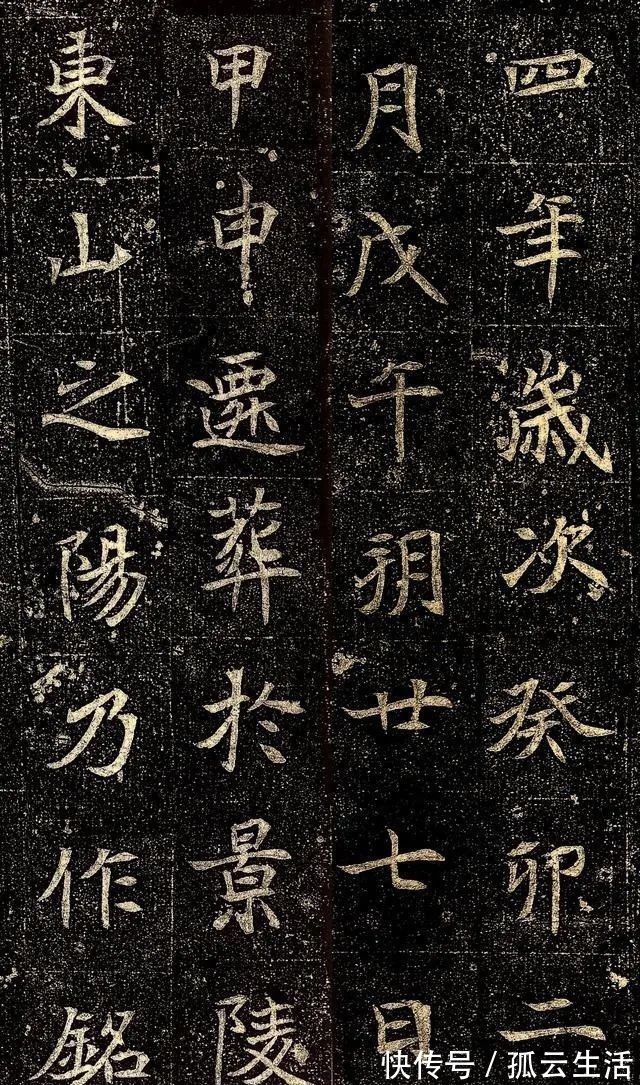 四年歲次癸卯二
月戊午朔廿七日
甲申遷葬於景陵
東山之陽乃作銘
快传号/孤云生活